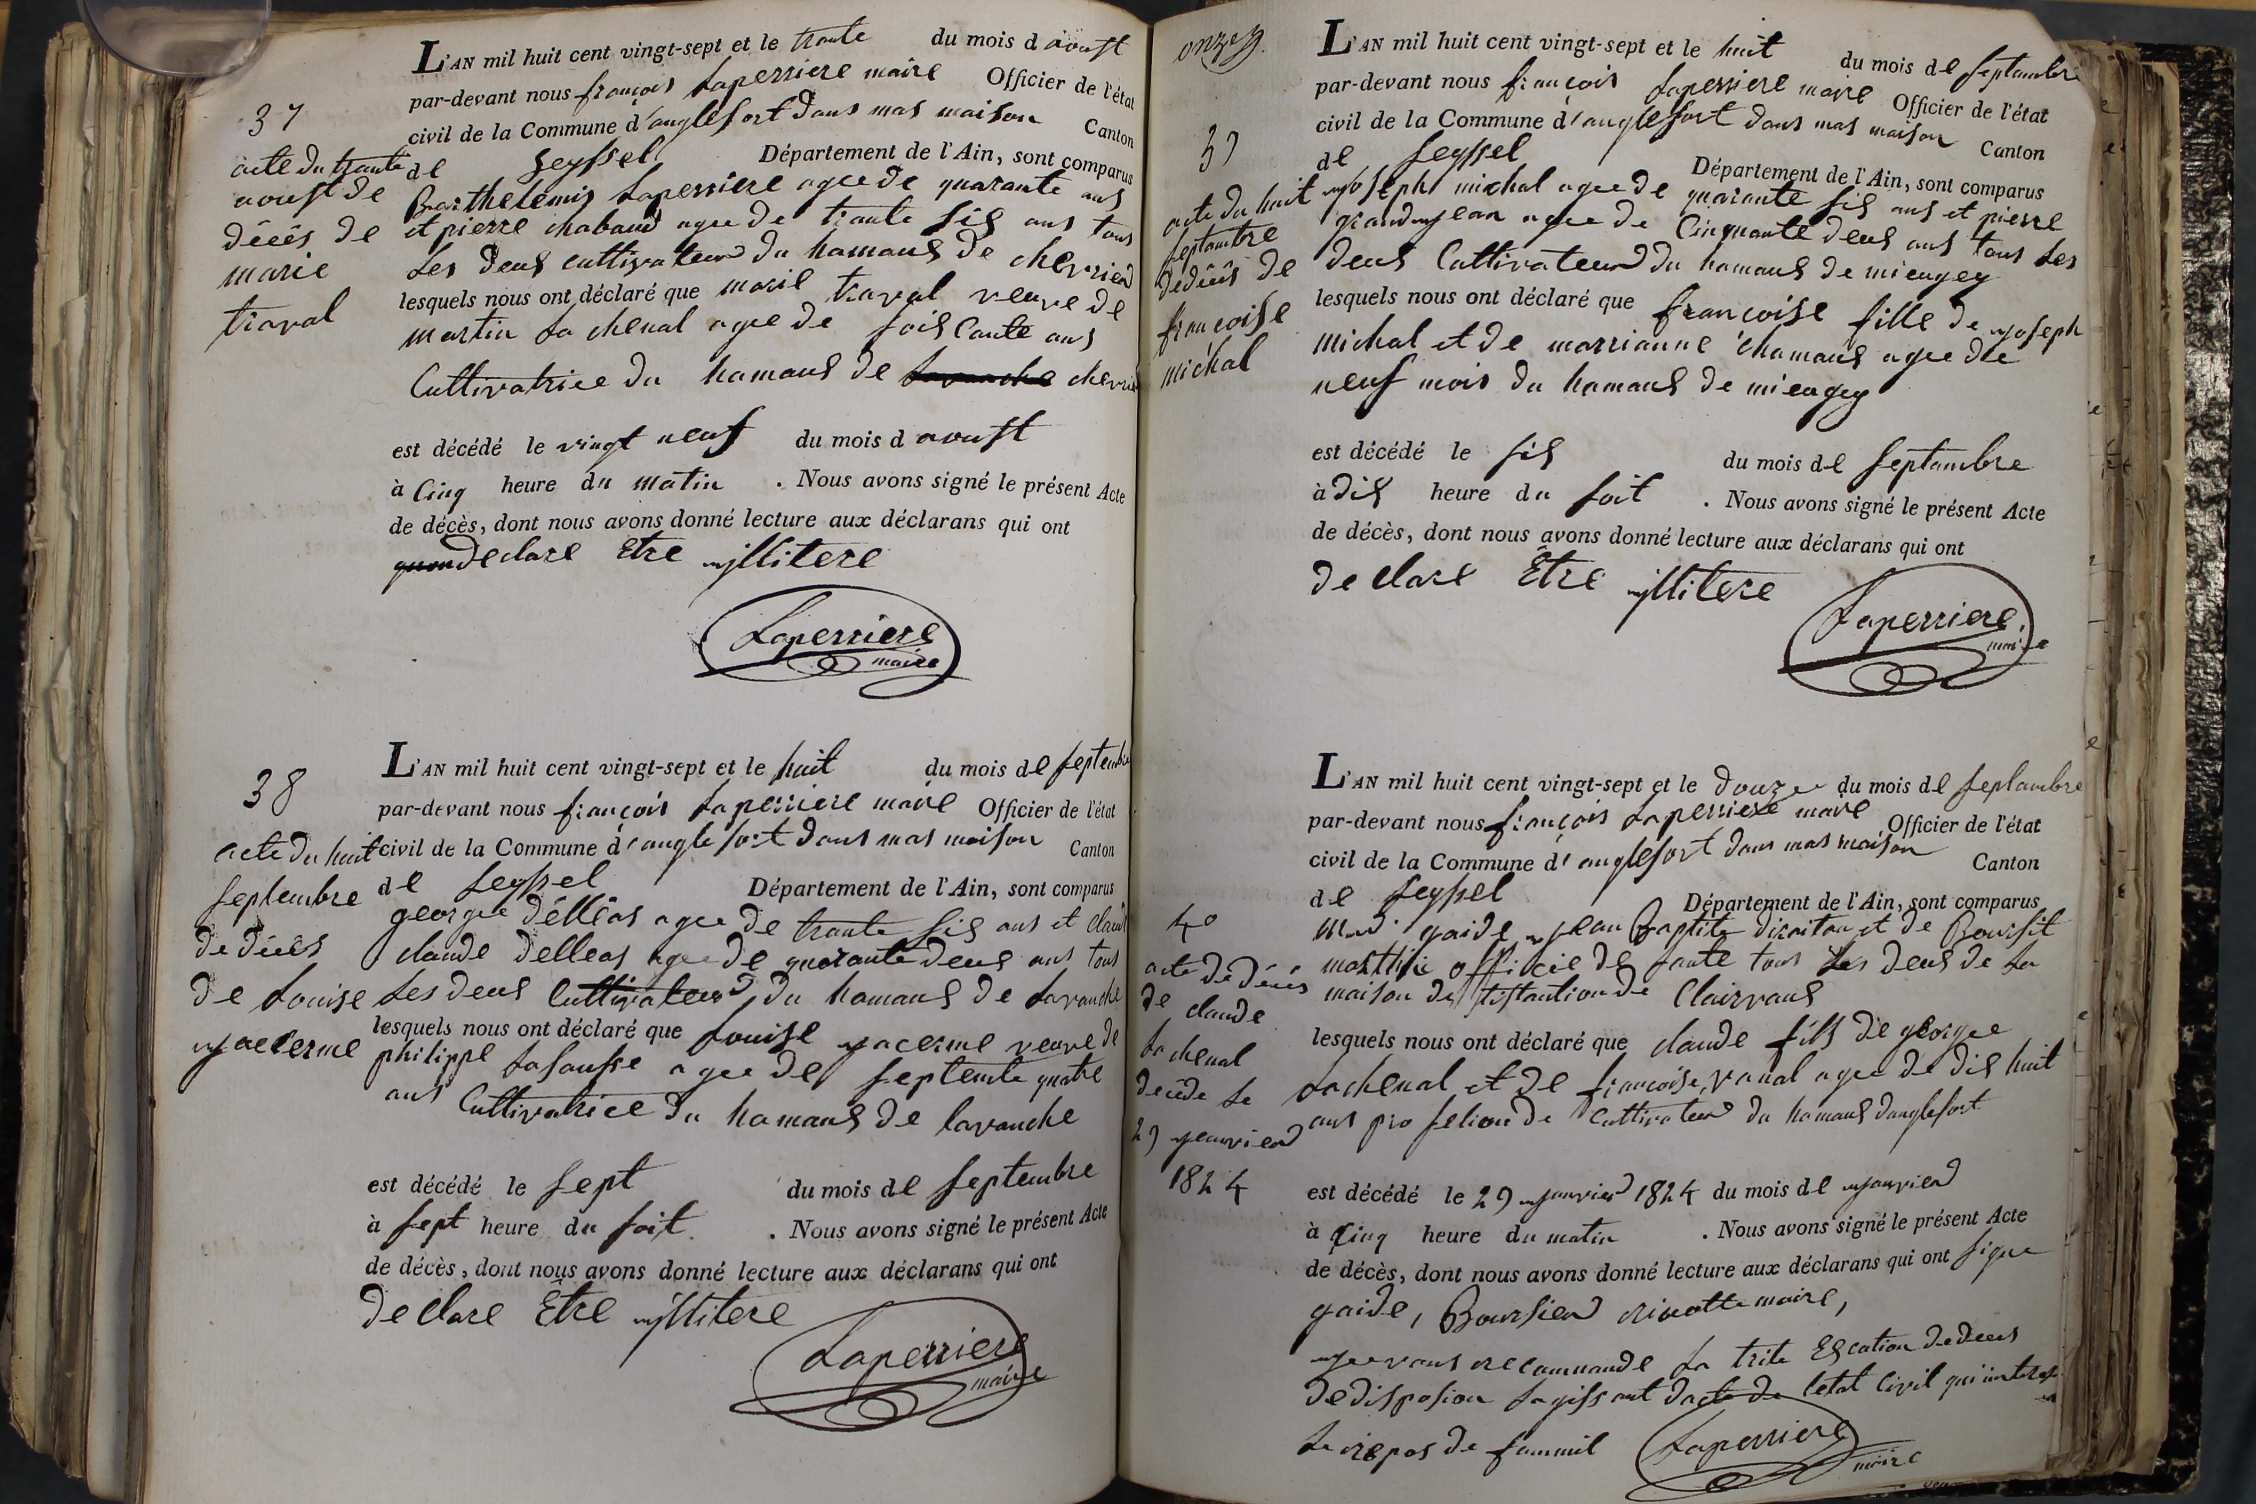 37
acte du trante
aoust de
décés de
marie
traval
L'AN mil huit cent vingt-sept et le trante du mois d aoust
par-devant nous françois Laperriere maire Officier de l'état
civil de la Commune d'anglefort dans mas maison Canton
de Seyssel Département de l'Ain, sont comparus
Barthelemis Laperriere agee de quarante ans
et pierre chabaud agee de trante sis ans tous
Les deus cultivateur du hamaus de chevrier
lesquels nous ont déclaré que marie traval veuve de
martin Lachenal agee de soiscante ans
Cultivatrice du hamaus de Lavanche chevrier
est décédé le vingt neuf du mois d aoust
à Cinq heure du matin . Nous avons signé le présent Acte
de décès, dont nous avons donné lecture aux déclarans qui ont
declare Etre yllitere
Laperriere
maire
38
acte du huit
septembre
de décés
de Louise
yacerme
L'AN mil huit cent vingt-sept et le huit du mois de septembre
par-devant nous françois Laperriere maire Officier de l'état
civil de la Commune d'anglefort dans mas maison Canton
de Seyssel Département de l'Ain, sont comparus
george délléas agee de trante sis ans et claud
claude delleas agee de quarante deus ans tous
Les deus Cultivateur du hamaus de Lavanche
lesquels nous ont déclaré que Louise yacerme veuve de
philippe Lasausse agee de septente quatre
ans Cultivatrice du hamaus de lavanche
est décédé le sept du mois de septembre
à sept heure du soit . Nous avons signé le présent Acte
de décès, dont nous avons donné lecture aux déclarans qui ont
declare Etre yllitere
Laperriere
maire
onze
39
acte du huit
septambre
de décés de
françoise
michal
L'AN mil huit cent vingt-sept et le huit du mois de septambre
par-devant nous françois Laperriere maire Officier de l'état
civil de la Commune d'anglefort dans mas maison Canton
de Seyssel Département de l'Ain, sont comparus
yoseph michal agee de quarante sis ans et pierre
grand yean agee de Cinquante deus ans tous Les
deus Cultivateur du hamaus de mieugey
lesquels nous ont déclaré que françoise fille de yoseph
michal et de marrianne chamaus agee de
neuf mois du hamaus de mieugey
est décédé le sis du mois de septambre
à dis heure du soit . Nous avons signé le présent Acte
de décès, dont nous avons donné lecture aux déclarans qui ont
declare Etre yllitere
Laperriere
maire
40
acte de décés
de claude
Lachenal
décéde Le
29 yeanvier
1824
L'AN mil huit cent vingt-sept et le douze du mois de septambre
par-devant nous françois Laperriere maire Officier de l'état
civil de la Commune d'anglefort dans mas maison Canton
de Seyssel Département de l'Ain, sont comparus
gaide yean Baptite et de Boursit
officie de sante tous Les deus de La
maison de de Clairvaus
lesquels nous ont déclaré que claude fils de george
Lachenal et de françoise vanal agee de dis huit
ans profesion de Cultivateur du hamaus danglefort
est décédé le 29 yanvier 1824 du mois de yanvier
à Cinq heure du matin . Nous avons signé le présent Acte
de décès, dont nous avons donné lecture aux déclarans qui ont signe
gaide, Boursier maire,
yee vous recammande La trite Escation
de disposion Sagissant dacte de letat Civil qui interese
Le repos de fammil
Laperriere
maire